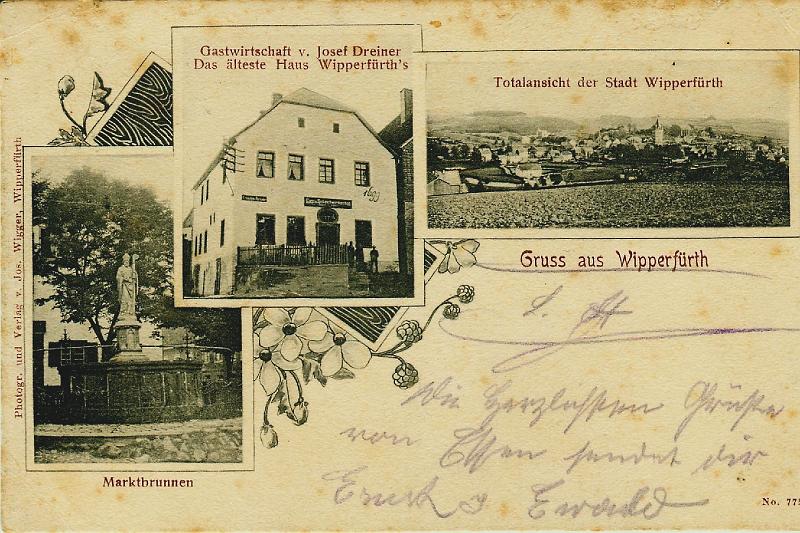 Gastwirtschaft v. Josef Dreiner
Das älteste Haus Wipperfürth's
Totalansicht der Stadt Wipperfürth
Photogr. und Verlag v. Jos. Wigger, Wipperfürth
Gruss aus Wipperfürth
Die Herzlichsten Grüße
von Essen sendet dir
Ewald
Marktbrunnen
No. 775